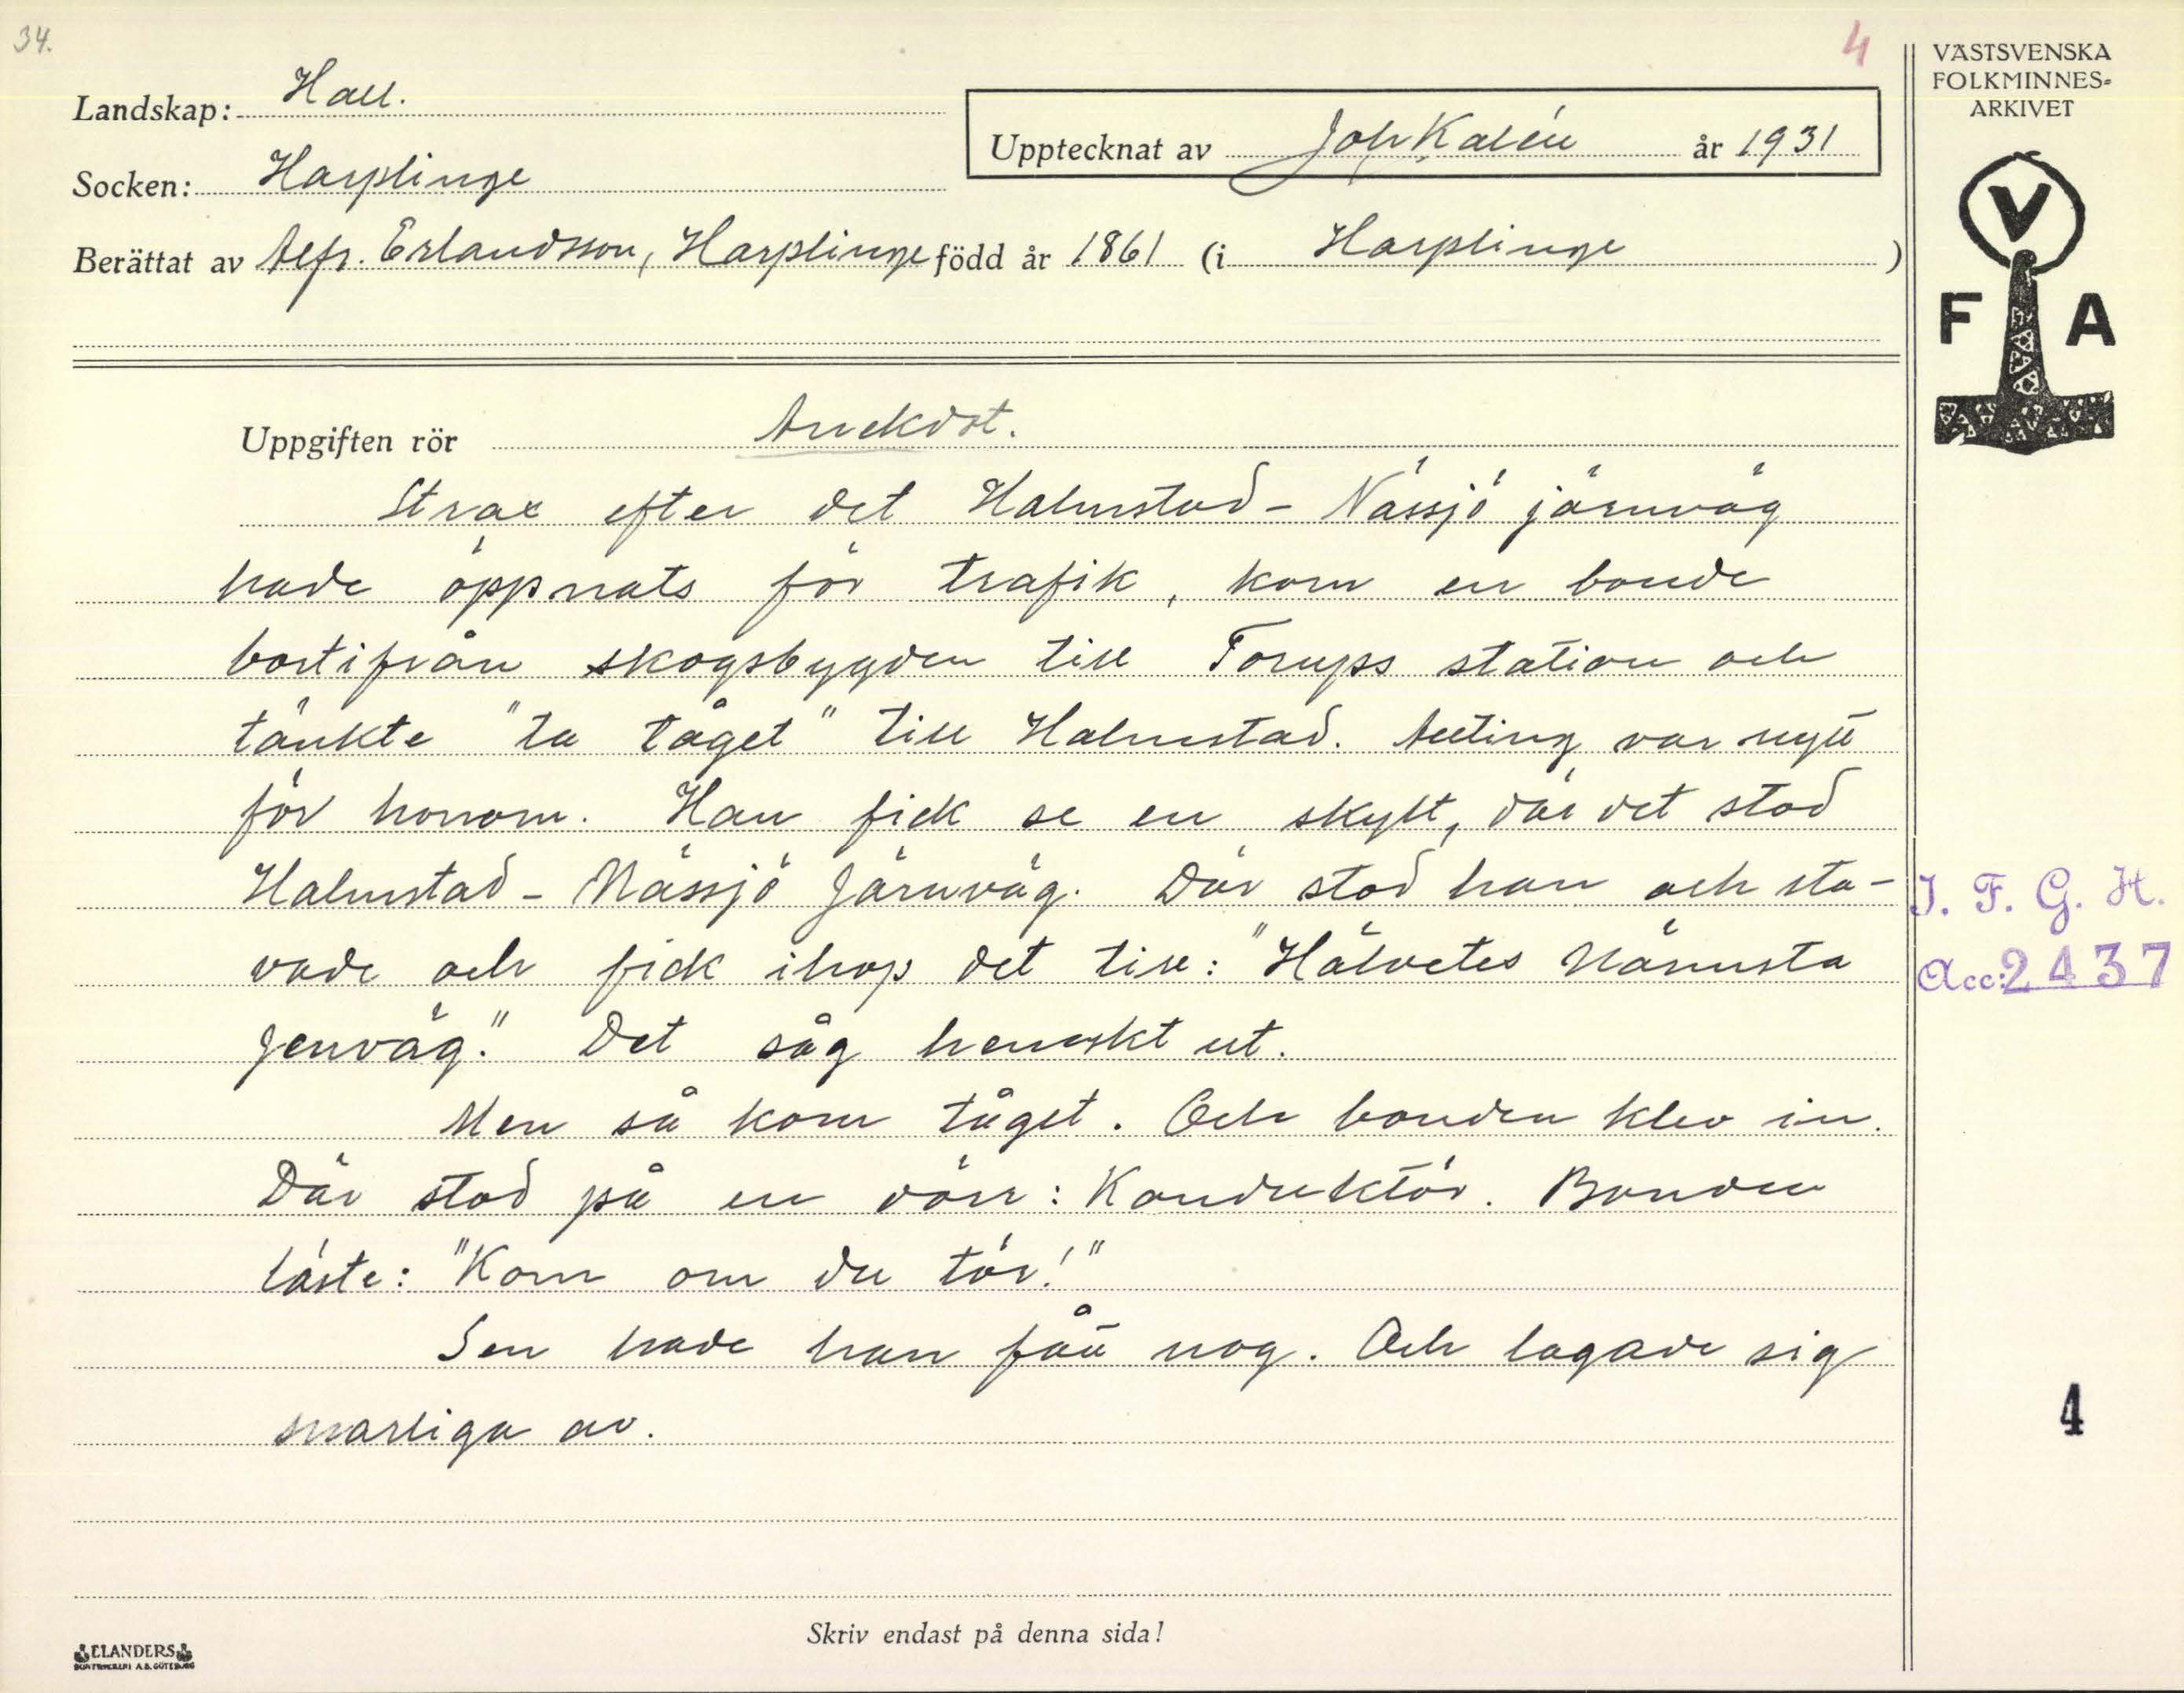 34.
4
Landskap: Hall.
Upptecknat av Joh Kalén år 1931
Socken: Harplinge
Berättat av Alfr. Erlandsson, Harplinge född år 1861 (i Harplinge)
VÄSTSVENSKA
FOLKMINNES-
ARKIVET
V
F A
Uppgiften rör Anekdot.
Strax efter det Halmstad - Nässjö järnväg
hade öppnats för trafik, kom en bonde
bortifrån skogsbygden till Torups station och
tänkte "ta tåget" till Halmstad. Allting var nytt
för honom. Han fick se en skylt, där det stod
Halmstad - Nässjö Järnväg. Där stod han och sta-
vade och fick ihop det till: "Hälvetes Nämsta
Jenväg." Det såg hemskt ut.
Men så kom tåget. Och bonden klev in.
Där stod på en dörr: Konduktör. Bonden
läste: "Kom om du tör!"
Sen hade han fått nog. Och lagade sig
snarliga av.
I. F. G. H.
Acc: 2437
4
Skriv endast på denna sida!
ELANDERS
BOKTRYCKERI A.B. GÖTEBORG